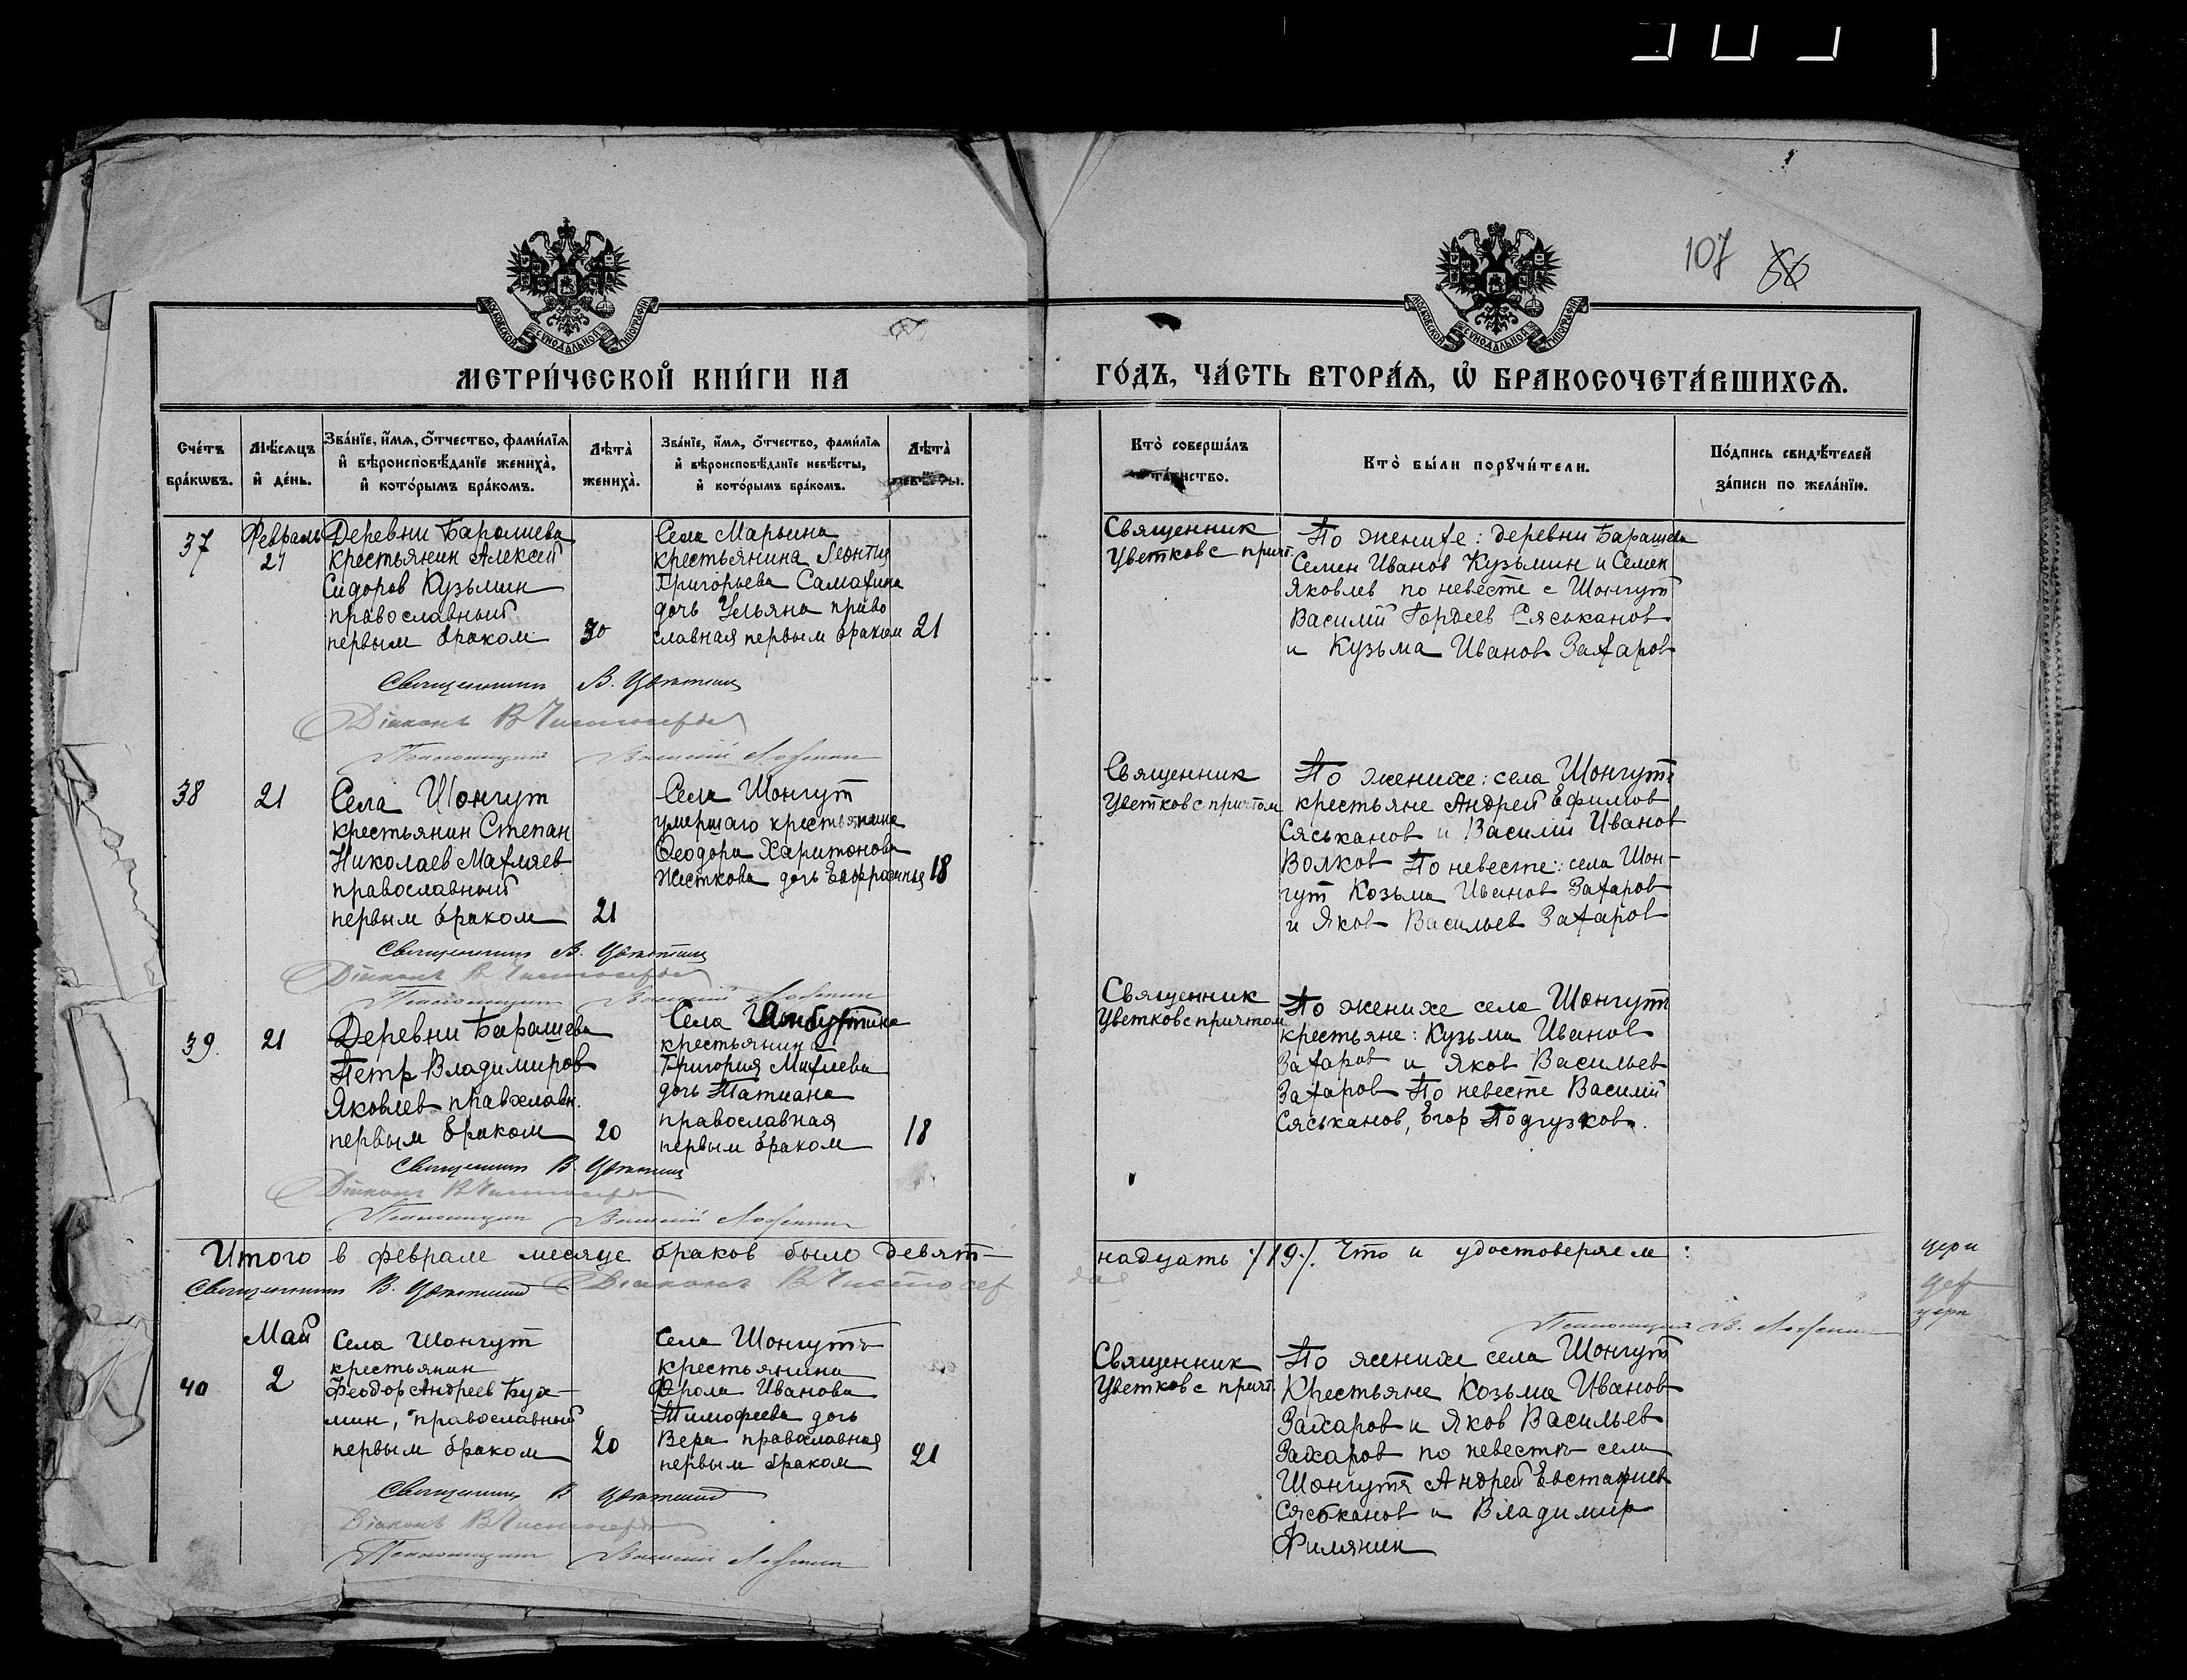 107 56
МОСКОВСКОЙ СѴНОДАЛЬНОЙ ТИПОГРАФІИ
МОСКОВСКОЙ СѴНОДАЛЬНОЙ ТИПОГРАФІИ
МЕТРИ́ЧЕСКОЙ КНИ́ГИ НА
ГО́ДЪ, ЧА́СТЬ ВТОРА́Ѧ, Ѽ БРАКОСОЧЕТА́ВШИХСѦ.
Сче́тъ бра́кѡвъ.
Мѣ́сѧцъ и҆ де́нь.
Зва́нїе, и҆́мѧ, ѻ҆́тчество, фами́лїѧ и҆ вѣроисповѣ́данїе жениха̀, и҆ кото́рымъ бра́комъ.
Лѣ́та жениха̀.
Зва́нїе, и҆́мѧ, ѻ҆́тчество, фами́лїѧ и҆ вѣроисповѣ́данїе невѣ́сты, и҆ кото́рымъ бра́комъ.
Лѣ́та невѣ́сты.
Кто̀ соверша́лъ та́инство.
Кто̀ бы́ли порꙋчи́тели.
По́дпись свидѣ́телей за́писи по жела́нїю.
37
Февраль
21
Деревни Барашева
крестьянин Алексей
Сидоров Кузьмин
православный
первым браком
30
Села Марьина
крестьянина Леонтия
Григорьева Самахина
дочь Ульяна право
славная первым браком
21
Священник
Цветков с прич.
По женихе: деревни Барашева
Семен Иванов Кузьмин и Семен
Яковлев по невесте с Шонгут
Василий Гордеев Сяськанов
и Кузьма Иванов Захаров
Священник В. Цветков
Діаконъ В Чистосердов
Псаломщик Василий
38
21
Села Шонгут
крестьянин Степан
Николаев Махляев
православный
первым браком
21
Села Шонгут
умершаго крестьянина
Феодора Харитонова
Жесткова дочь Евфросинья
18
Священник
Цветков с причтом
По женихе: села Шонгут
крестьяне Андрей Ефимов
Сяськанов и Василий Иванов
Волков По невесте: села Шон-
гут Козьма Иванов Захаров
и Яков Васильев Захаров
Священник В. Цветков
Діаконъ В Чистосердов
Псаломщик Василий
39.
21
Деревни Барашева
Петр Владимиров
Яковлев православн.
первым браком
20
Села
крестьянина
Григория Махлева
дочь Татиана
православная
первым браком
18
Священник
Цветков с причтом
По женихе села Шонгут
крестьяне: Кузьма Иванов
Захаров и Яков Васильев
Захаров По невесте Василий
Сяськанов, Егор Подгузков.
Священник В. Цветков
Діаконъ В Чистосердов
Псаломщик Василий
Итого в феврале месяце браков было девят-
надцать /19/. Что и удостоверяем:
Священник В. Цветков Діаконъ В Чистосер
дов
Псаломщик В.
Май
40
2
Села Шонгут
крестьянин
Феодор Андреев Бух-
мин, православный
первым браком
20
Села Шонгутъ
крестьянина
Фрола Иванова
Тимофеева дочь
Вера православная
первым браком
21
Священник
Цветков с прич.
По женихе села Шонгут
Крестьяне Козьма Иванов
Захаров и Яков Васильев
Захаров по невестѣ села
Шонгутя Андрей Евстафиев
Сясбканов и Владимир
Филянин
Священник В Цветков
Діаконъ В Чистосердов
Псаломщик Василий